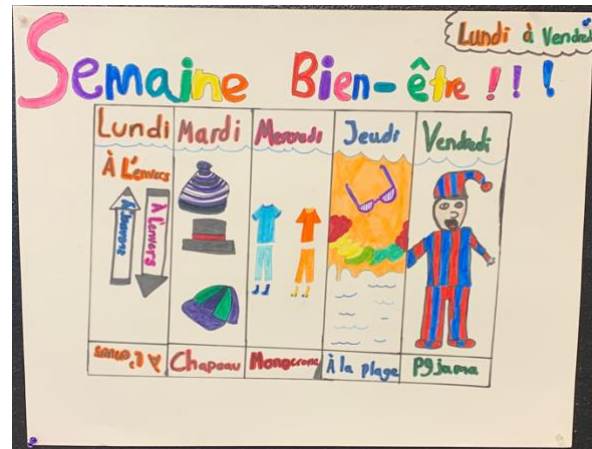 Lundi à Vendredi
Semaine Bien-être !!!
Lundi Mardi Mercredi Jeudi Vendredi
À L'envers
À L'envers
À L'envers Chapeau Monocrome À la plage Pyjama